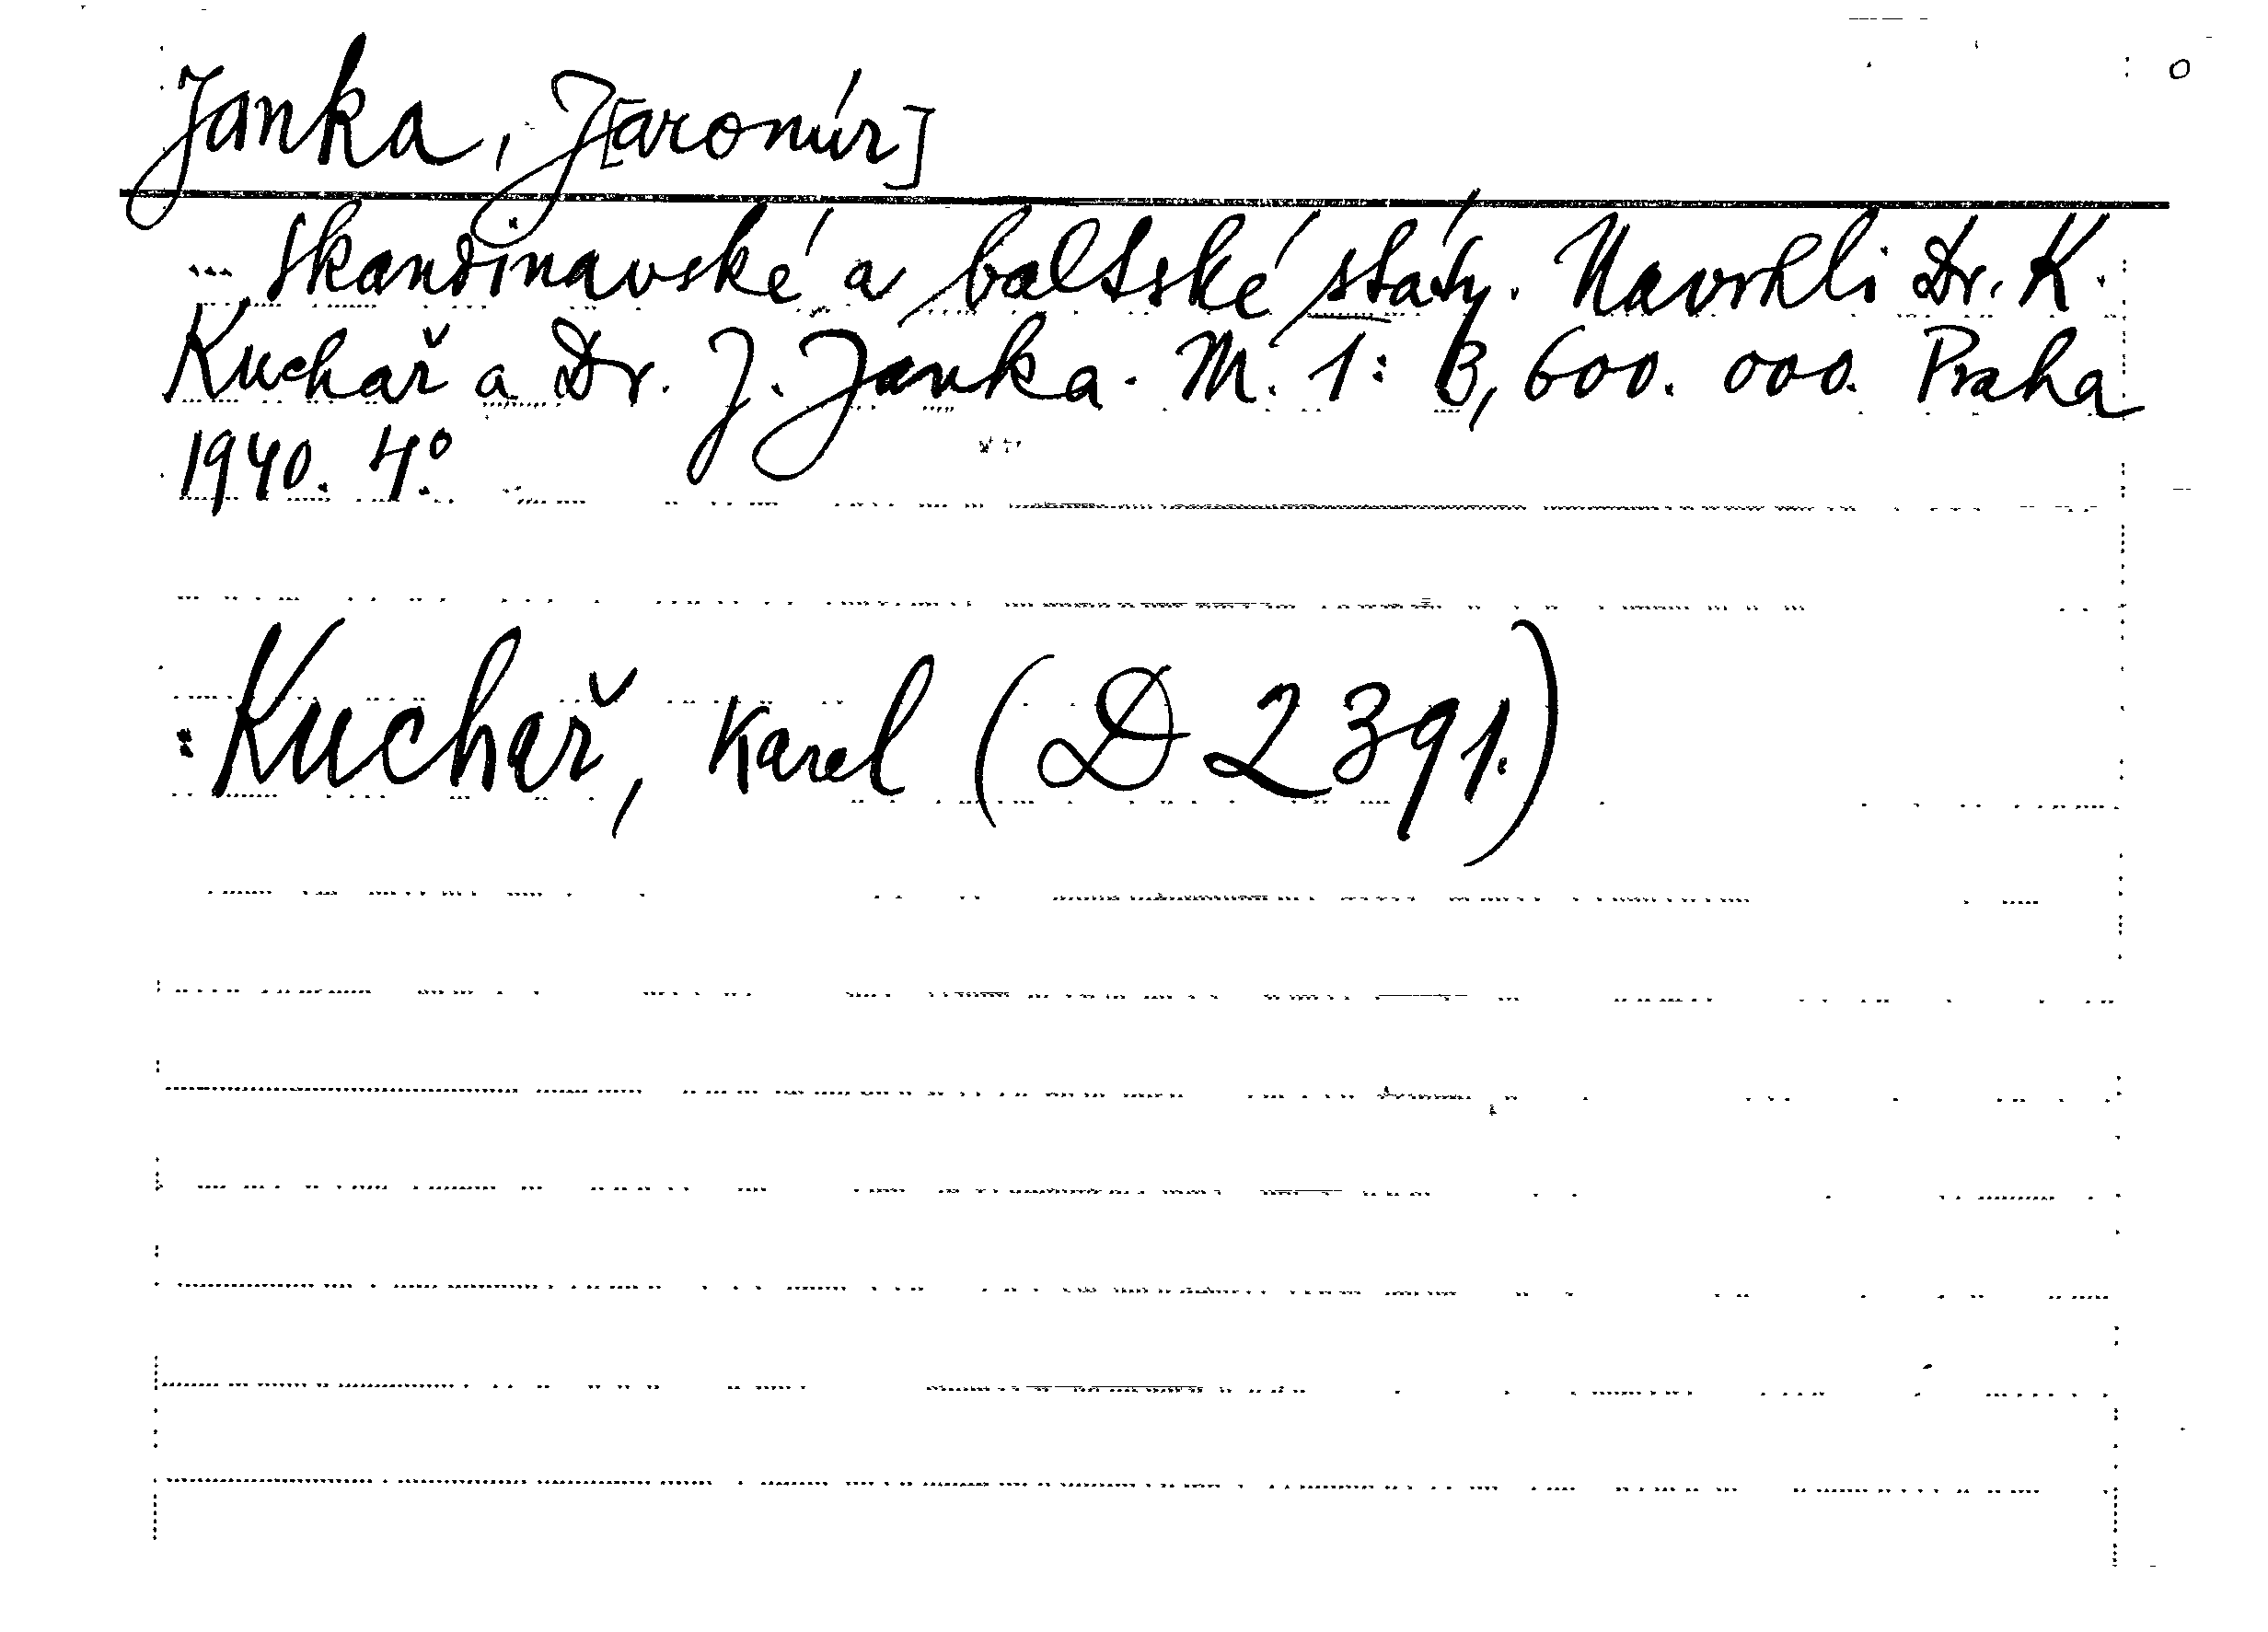 Janka, J[aromír]
... Skandinavské a baltské státy. Navrhli Dr. K.
Kuchař a Dr. J. Janka. M. 1: 3,600.000. Praha
1940. 4°.
: Kuchař, Karel (D 2391.)